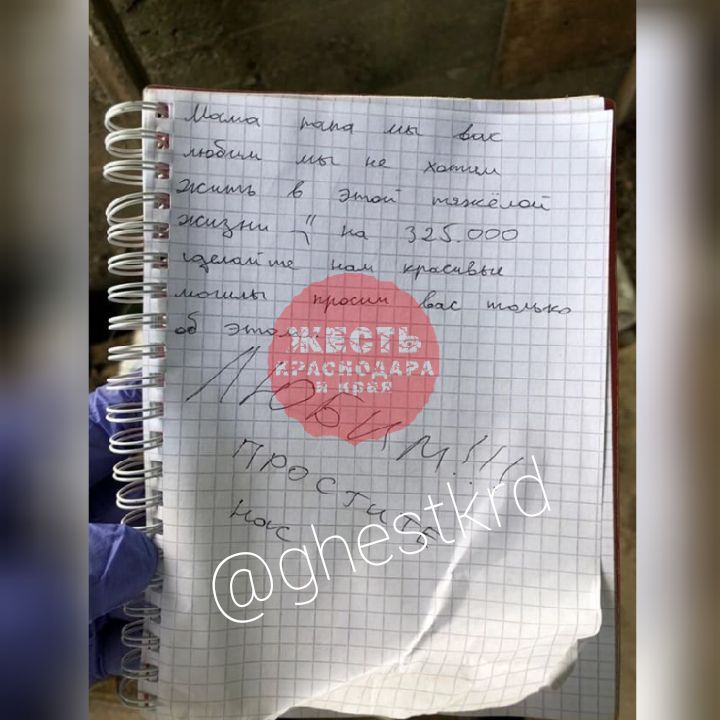 Мама папа мы вас
любим мы не хотим
жить в этой тяжёлой
жизни на 325.000
сделайте нам красивые
могилы просим вас только
об этом
ЖЕСТЬ
КРАСНОДАРА
и края
ЛЮБИМ!!!
ПРОСТИТЕ
нас
@ghestkrd